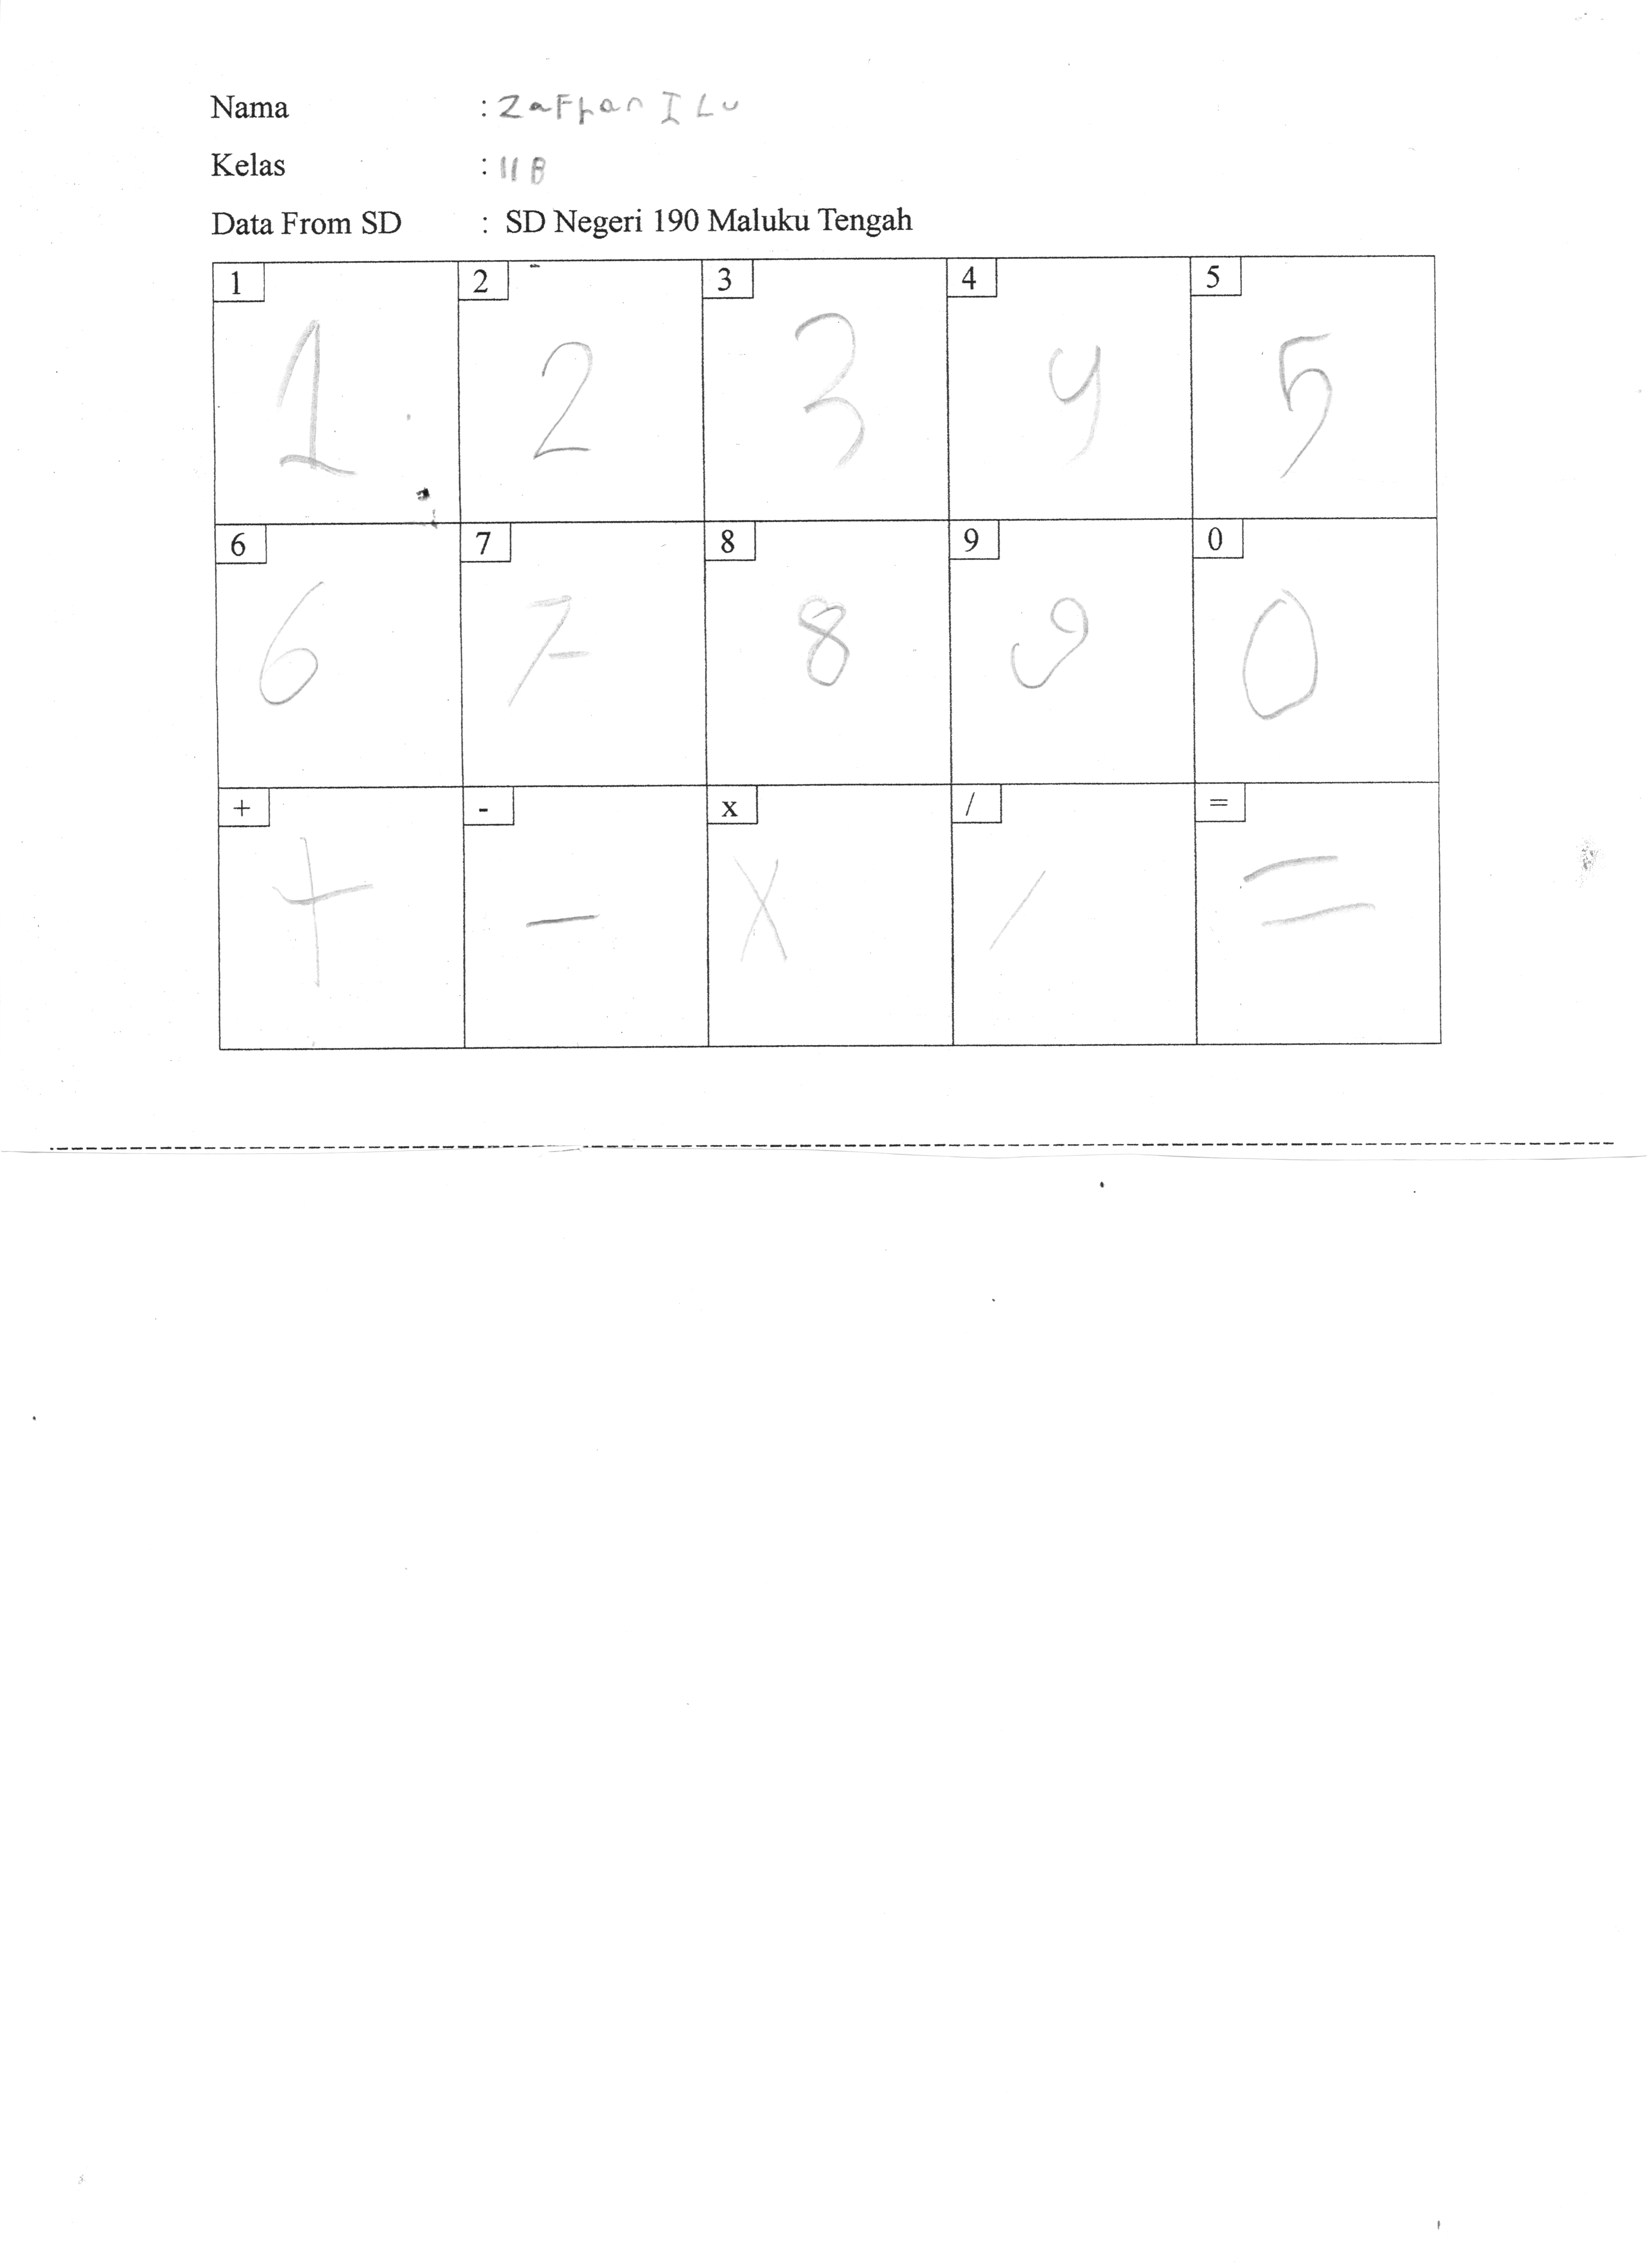 Nama : Zaffran ILU
Kelas : 11 B
Data From SD : SD Negeri 190 Maluku Tengah
1 2 3 4 5
1 2 3 4 5
6 7 8 9 0
6 7 8 9 0
+ - x / =
+ - x / =